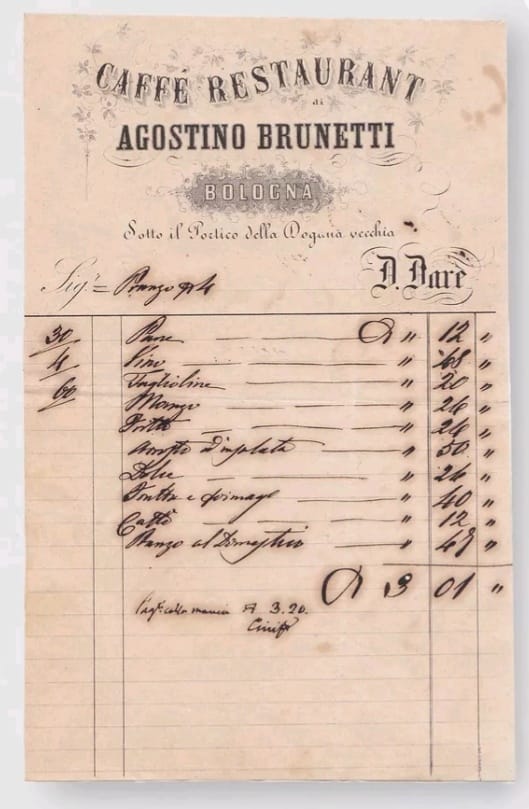 CAFFÉ RESTAURANT
di
AGOSTINO BRUNETTI
BOLOGNA
Sotto il Portico della Dogana vecchia
D. Dare
Sigr. = Pranzo
30 Pane " 12 "
4 Vino " 48 "
60 Taglioline " 20 "
Manzo " 26 "
Fritto " 26 "
Arrosto d'insalata " 50 "
Dolce " 24 "
Frutta e formage " 40 "
Caffè " 12 "
Pranzo al Domestico " 43 "
3 01 "
colla mancia 3.20.